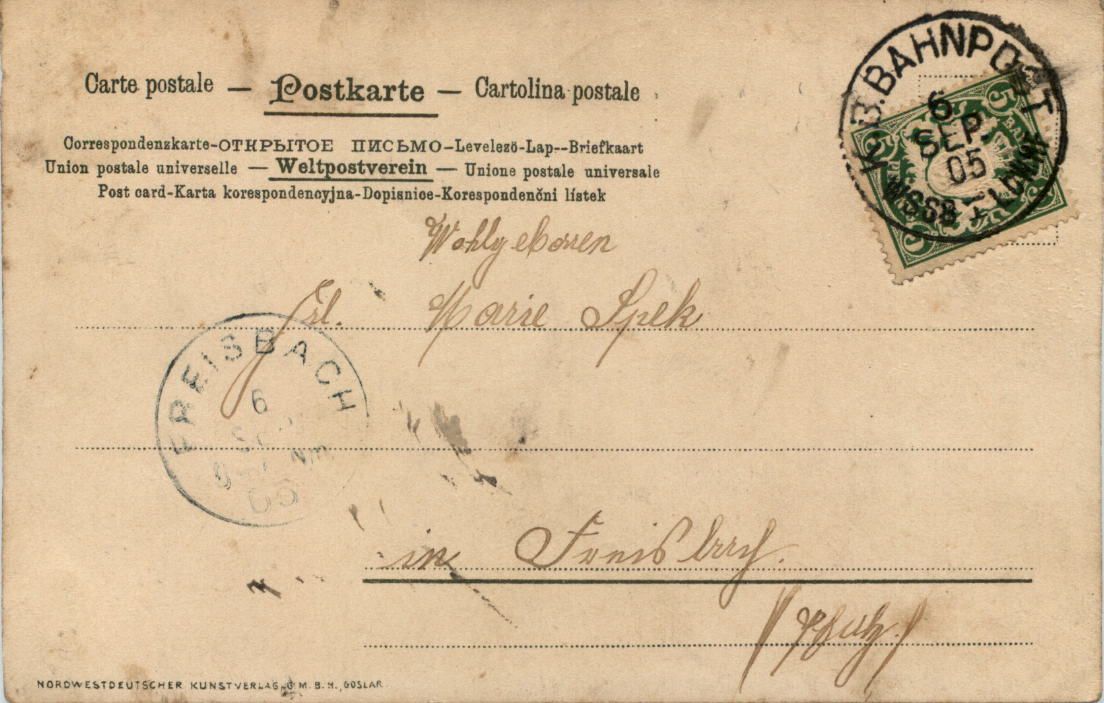 Carte postale — Postkarte — Cartolina postale
Correspondenzkarte-ОТКРЫТОЕ ПИСЬМО-Levelező-Lap--Briefkaart
Union postale universelle — Weltpostverein — Unione postale universale
Post card-Karta korespondencyjna-Dopisnice-Korespondenční lístek
K.B.BAHNPOST
6
SEP.
05
5
5
Wohlgeboren
Frl. Marie Spek
FREISBACH
6
05
in Freisbach.
(Pfalz.)
NORDWESTDEUTSCHER KUNSTVERLAG G.M.B.H., GOSLAR